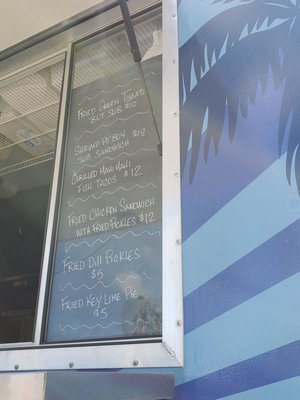 Fried Green Tomato
BLT Sub $10
Shrimp Po'boy $12
Sub Sandwich
Grilled Mahi Mahi
Fish Tacos $12
Fried Chicken Sandwich
with Fried Pickles $12
Fried Dill Pickles
$5
Fried Key Lime Pie
$5